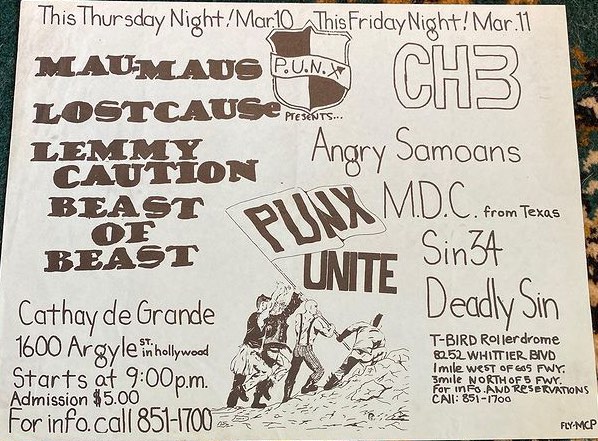 This Thursday Night! Mar.10
This Friday Night! Mar.11
P.U.N.X
PRESENTS...
MAU-MAUS
LOSTCAUSe
LEMMY
CAUTION
BEAST
OF
BEAST
CH3
Angry Samoans
M.D.C. from Texas
Sin 34
Deadly Sin
PUNX
UNITE
Cathay de Grande
1600 Argyle ST. in hollywood
Starts at 9:00p.m.
Admission $5.00
For info. call 851-1700
T-BIRD Rollerdrome
8252 WHITTIER BLVD
1 mile west of 605 FWY.
3mile NORTH OF 5 FWY.
For info. AND RESERVATIONS
CAll: 851-1700
FLY-MCP